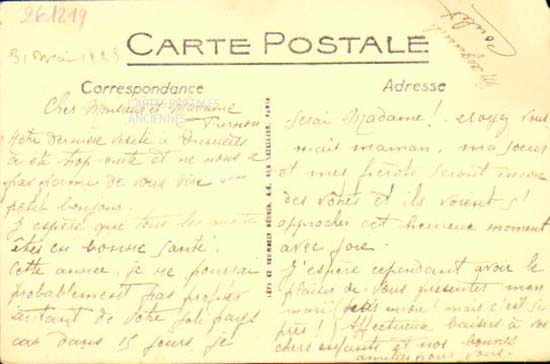 261219
31 Mai 1923
CARTE POSTALE
Correspondance
Adresse
CARTES POSTALES
ANCIENNES
Cher Monsieur et Madame
Pierson
Notre dernière visite à
a été trop courte et ne nous a
pas permis de vous dire un
petit bonjour.
J'espère que tous les quatre
êtes en bonne santé.
Cette année, je ne pourrai
probablement pas profiter
autant de votre joli pays
car dans 15 jours je
serai Madame! croyez vous
mais maman, ma soeur
et mes frérots seront encore
des vôtres et ils voient s'
approcher cet heureux moment
avec joie.
J'espère cependant avoir le
plaisir de vous présenter mon
mari encore! mais c'est si
près! Affectueux baisers à vos
chers enfants et nos bonnes
amitiés pour vous.